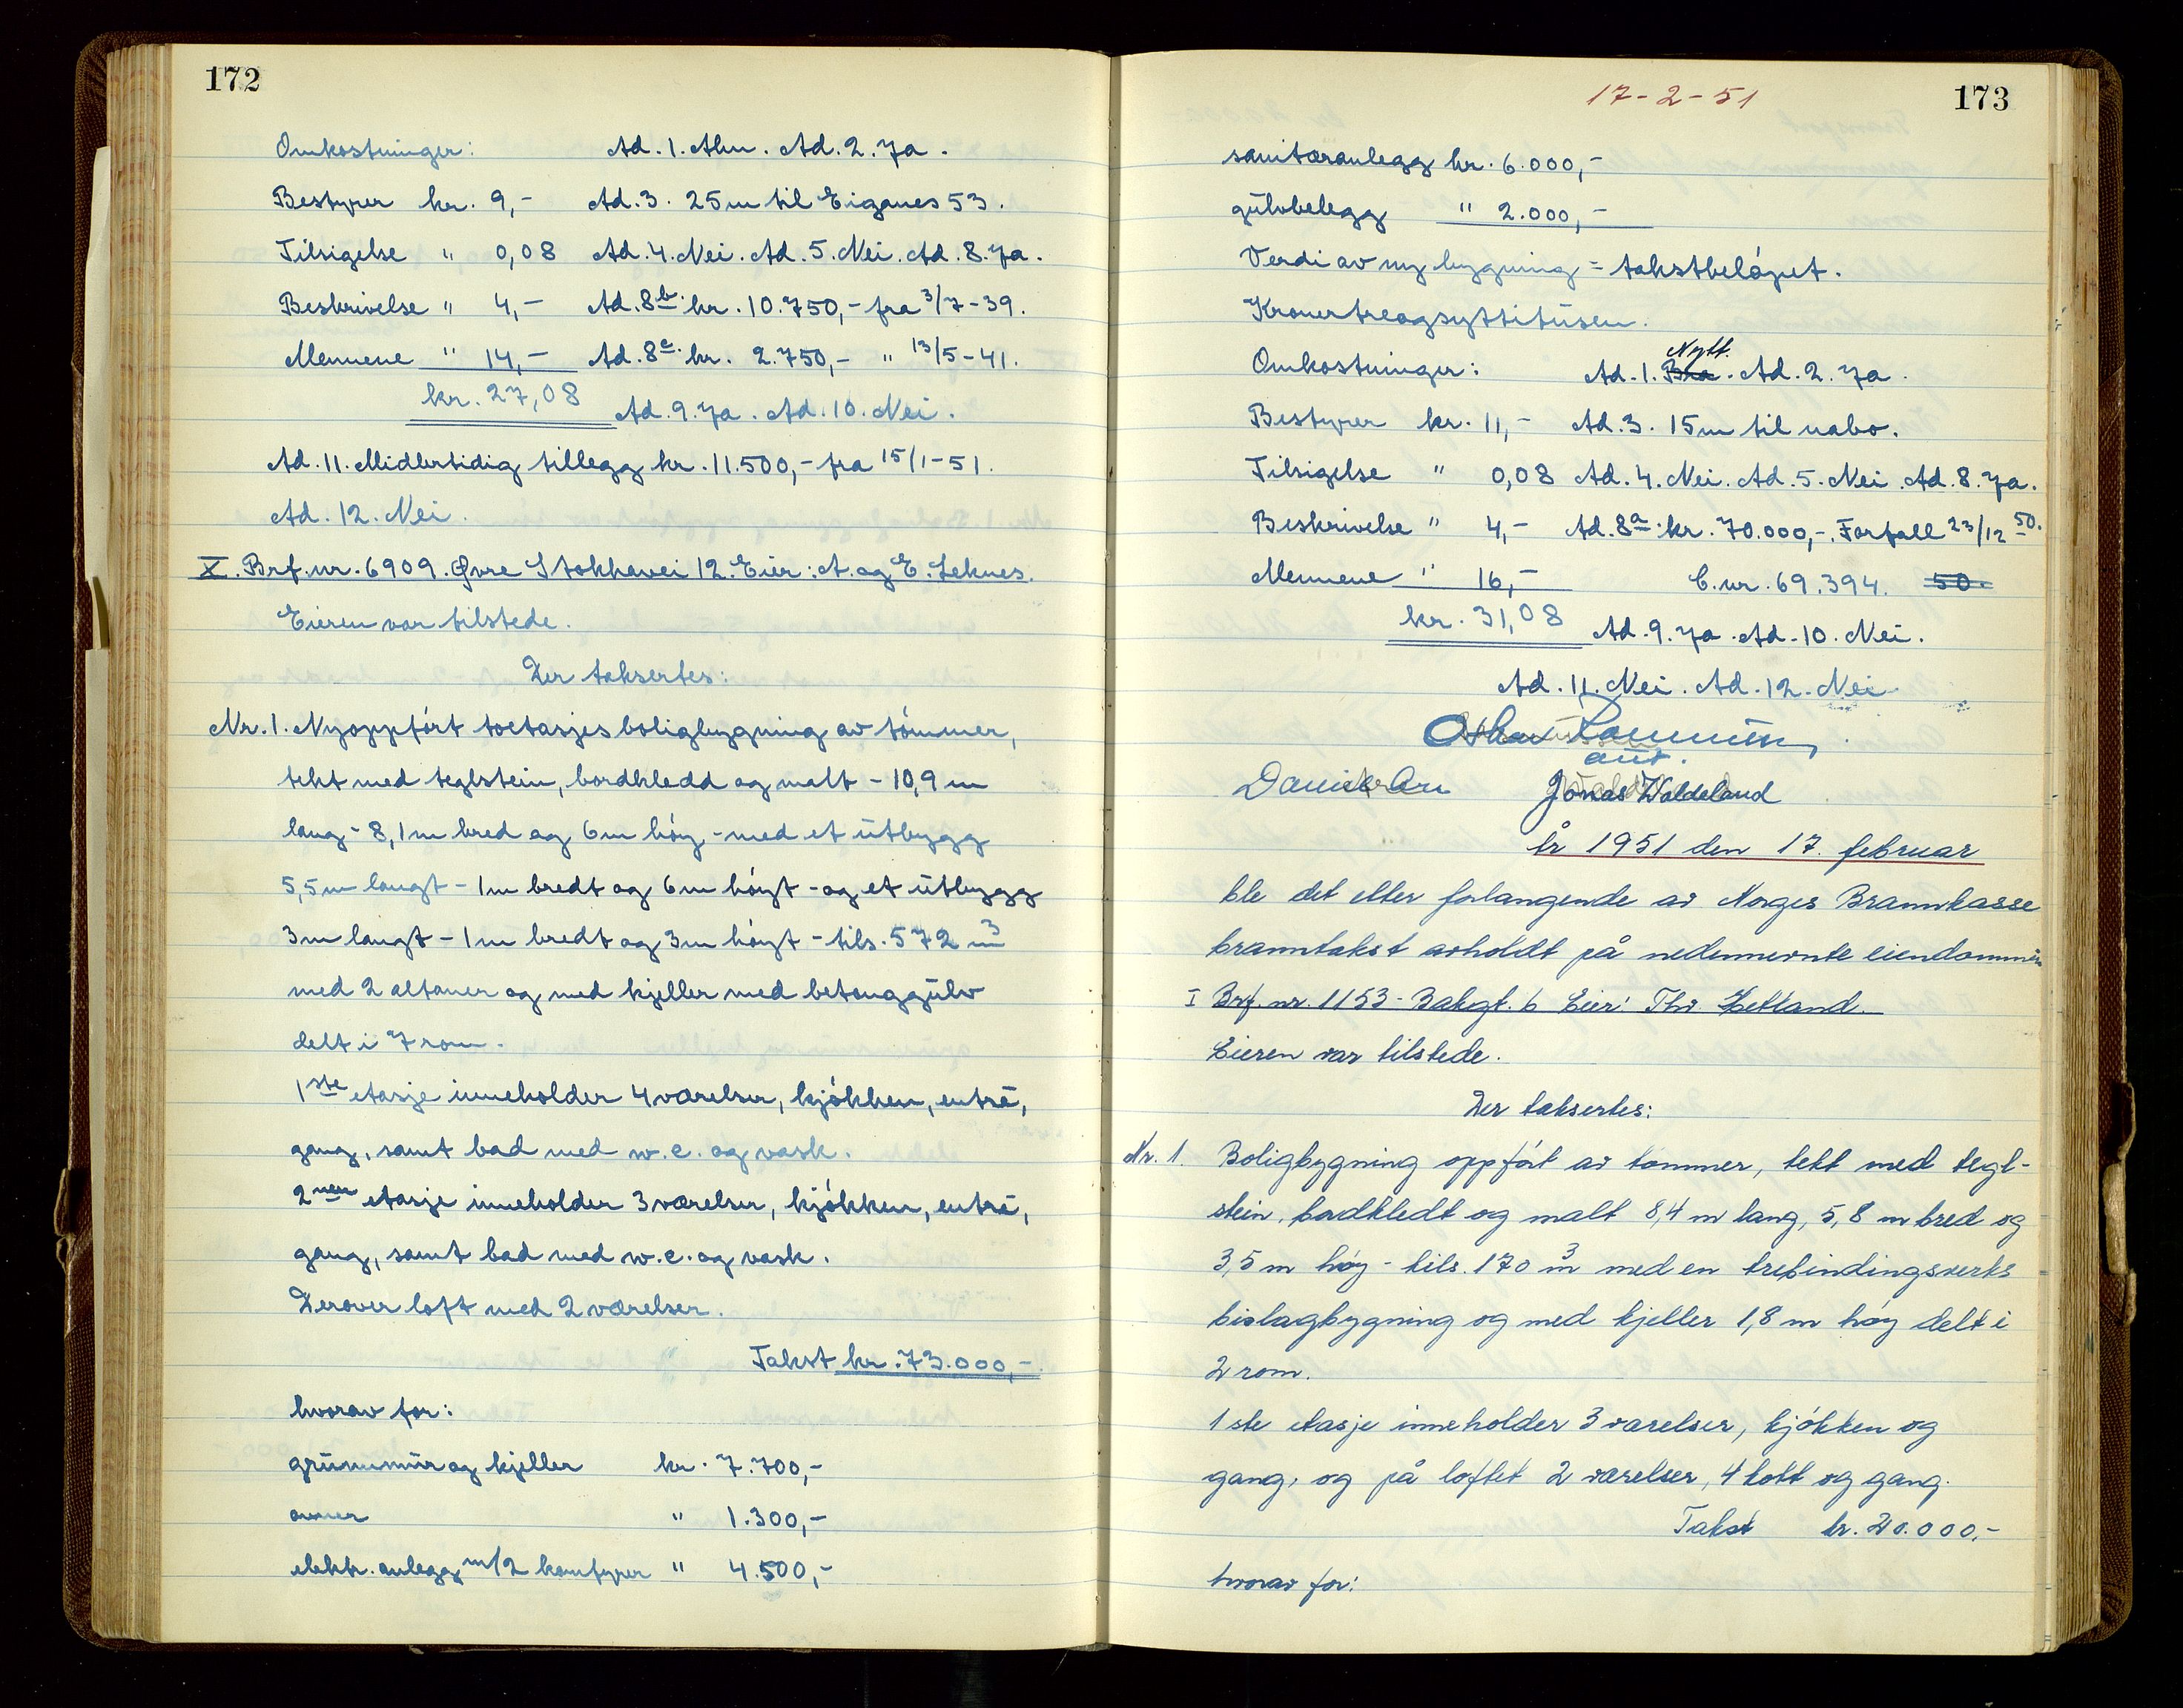 172
Omkostninger: Ad. 1. Alm. Ad. 2. Ja.
Bestyrer kr. 9,- Ad. 3. 25m til Eiganes 53.
Tilsigelse " 0,08 Ad. 4. Nei. Ad. 5. Nei. Ad. 8. Ja.
Beskrivelse " 4,- Ad. 8b. kr. 10.750,- fra 3/7-39.
Mennene " 14,- Ad. 8c. kr. 2.750,- " 13/5-41.
kr. 27,08 Ad. 9. Ja. Ad. 10. Nei.
Ad. 11. Midlertidig tillegg kr. 11.500,- fra 15/1-51.
Ad. 12. Nei.
X. Brf. nr. 6909. Øvre Stokkavei 12. Eier: A. og E. Leknes.
Eieren var tilstede.
Der taksertes:
Nr. 1. Nyoppført toetasjes boligbygning av tømmer,
tekt med teglstein, bordkledd og malt - 10,9 m
lang - 8,1 m bred og 6m høy, - med et utbygg
5,5 m langt - 1m bredt og 6m høyt - og et utbygg
3m langt - 1m bredt og 3m høyt - tils. 572 m3
med 2 altaner og med kjeller med betonggulv
delt i 7 rom.
1ste etasje inneholder 4 værelser, kjøkken, entré,
gang, samt bad med w.c. og vask.
2nen etasje inneholder 3 værelser, kjøkken, entré,
gang, samt bad med w.c. og vask.
Derover loft med 2 værelser.
Takst kr. 73.000,-
hvorav for:
grunnmur og kjeller kr. 7.700,-
ovner " 1.300,-
elektr. anlegg m/2 komfyrer " 4.500,-
17-2-51 173
sanitæranlegg kr. 6.000,-
gulvbelegg " 2.000,-
Verdi av ny bygning = takstbeløpet.
Kronertreogsyttitusen.
Nytt.
Omkostninger: Ad. 1. Bra. Ad. 2. Ja.
Bestyrer kr. 11,- Ad. 3. 15m til nabo.
Tilsigelse " 0,08 Ad. 4. Nei. Ad. 5. Nei. Ad. 8. Ja.
Beskrivelse " 4,- Ad. 8a. kr. 70.000,-. Forfall 23/12-50.
Mennene " 16,- C. nr. 69.394. 50.
kr. 31,08 Ad. 9. Ja. Ad. 10. Nei.
Ad. 11. Nei. Ad. 12. Nei
aut.
Jonas Waldeland
År 1951 den 17. februar
ble det etter forlangende av Norges Brannkasse
branntakst avholdt på nedennevnte eiendommer
I Brf. nr. 1153 - Bakegt. 6 Eier: Thv. Hetland.
Eieren var tilstede.
Der taksertes:
Nr. 1. Boligbygning oppført av tømmer, tekt med tegl-
stein, bordkledt og malt 8,4 m lang, 5,8 m bred og
3,5 m høy - tils. 170 m3 med en trebindingsverks
bislagbygning og med kjeller 1,8 m høy delt i
2 rom.
1ste etasje inneholder 3 værelser, kjøkken og
gang, og på loftet 2 værelser, 4 kott og gang.
Takst kr. 20.000,-
hvorav for: